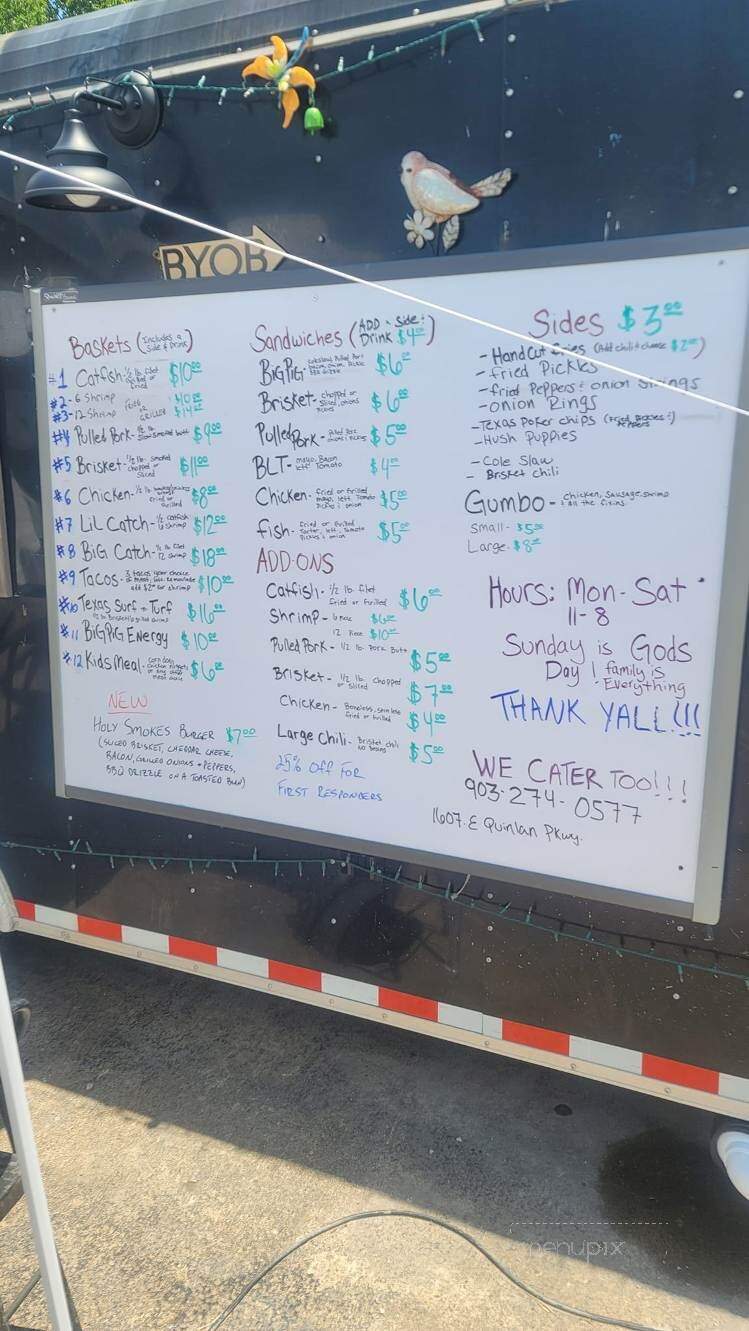 BYOB
Baskets (Includes a Side & Drink)
#1 Catfish - 1/2 lb filet grilled or fried $10.00
#2 - 6 Shrimp fried or $10.00
#3 - 12 Shrimp GRILLED $14.00
#4 Pulled Pork - 1/2 lb. Slow Smoked butt $9.00
#5 Brisket - 1/2 lb. Smoked chopped or Sliced $11.00
#6 Chicken - 1/2 lb. fried or Grilled $8.00
#7 Lil Catch - 1/2 catfish 6 shrimp $12.00
#8 BiG Catch - 1/2 filet 12 shrimp $18.00
#9 Tacos - 3 tacos your choice of meat, add $2.00 for shrimp $10.00
#10 Texas Surf & Turf $16.00
#11 BiGPiG Energy $10.00
#12 Kids Meal - corn dog, chicken nuggets or $6.00
NEW
HOLY SMOKES BURGER $7.00
(SLICED BRISKET, CHEDDAR CHEESE,
BACON, GRILLED ONIONS & PEPPERS,
BBQ DRIZZLE ON A TOASTED BUN)
Sandwiches (ADD - Side & Drink $4.00)
BiGPiG - coleslaw, Pulled Pork bacon, onion, Pickle BBQ drizzle $6.00
Brisket - chopped or Sliced, onions Pickles $6.00
Pulled Pork - Pulled Pork onions & Pickles $5.00
BLT - mayo, Bacon Lett Tomato $4.00
Chicken - fried or Grilled mayo, lett, Tomato Pickle & onion $5.00
fish - fried or Grilled Tarter, lett, Tomato Pickles & onion $5.00
ADD-ONS
Catfish - 1/2 lb filet fried or Grilled $6.00
Shrimp - 6 Piece $6.00
12 Piece $10.00
Pulled Pork - 1/2 lb. Pork Butt $5.00
Brisket - 1/2 lb. chopped or Sliced $7.00
Chicken - Boneless, skinless fried or Grilled $4.00
Large Chili - Brisket chili no beans $5.00
25% OFF FOR
FIRST RESPONDERS
Sides $3.00
- Hand Cut fries (Add chili & cheese $2.00)
- fried Pickles
- fried Peppers & onion Strings
- onion Rings
- Texas Poker chips (fried Pickles & Peppers)
- Hush Puppies
- Cole Slaw
- Brisket chili
Gumbo - chicken, Sausage, Shrimp & all the fixins.
Small - $5.00
Large - $8.00
Hours: Mon - Sat
11-8
Sunday is Gods
Day! family is
Everything
THANK YALL!!!
WE CATER TOO!!!
903-274-0577
1607 E Quinlan Pkwy.
menupix